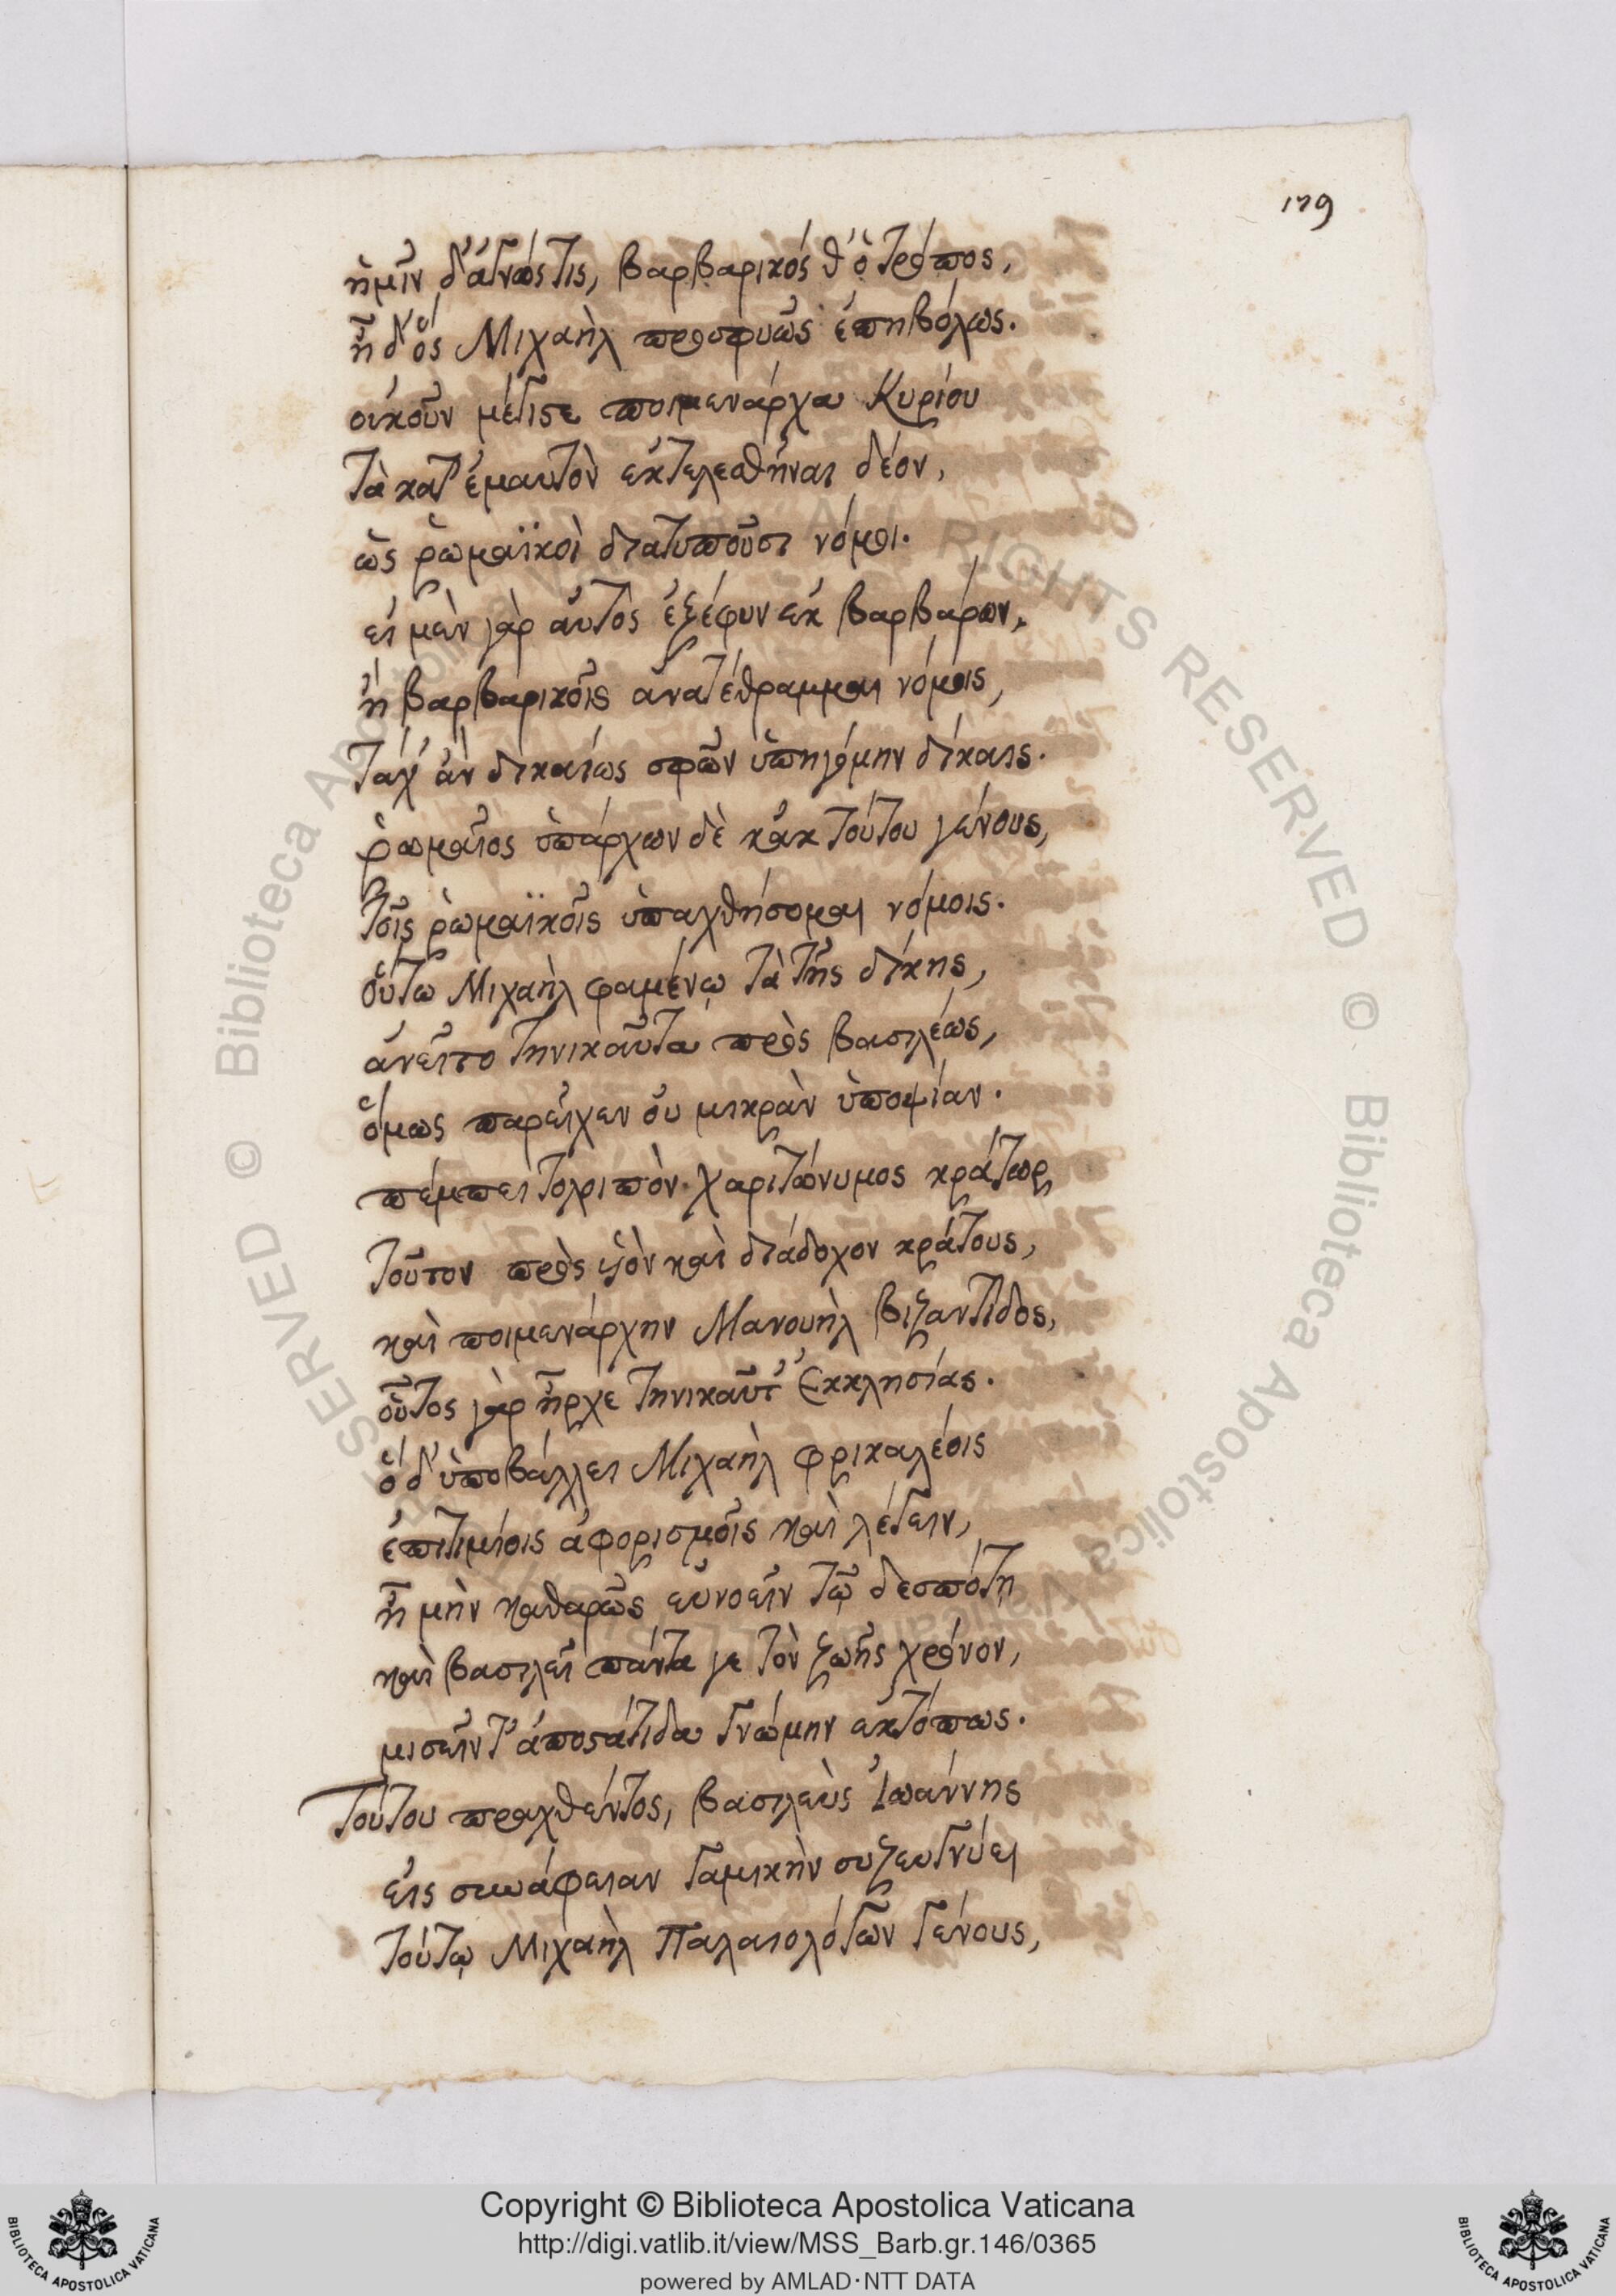 179
ἡμῖν δ' ἀγνώς τις, βαρβαρικός θ' ὁ τρόπος,
ἦ δ' ὃς Μιχαὴλ προσφυῶς ἐπηβόλως.
οὐκοῦν μέγιστε ποιμενάρχα Κυρίου
τὰ κατ' ἐμαυτὸν ἐκτελεσθῆναι δέον,
ὡς ῥωμαϊκοὶ διατυποῦσι νόμοι.
εἰ μὲν γὰρ αὐτὸς ἐξέφυν ἐκ βαρβάρων,
ἢ βαρβαρικοῖς ἀνατέθραμμαι νόμοις,
τάχ' ἂν δικαίως σφῶν ὑπηγόμην δίκαις.
ῥωμαῖος ὑπάρχων δὲ κἀκ τούτου γένους,
τοῖς ῥωμαϊκοῖς ὑπαχθήσομαι νόμοις.
οὕτω Μιχαὴλ φαμένῳ τὰ τῆς δίκης,
ἀνεῖτο τηνικαῦτα πρὸς βασιλέως,
ὅμως παρεῖχεν οὐ μικρὰν ὑποψίαν.
πέμπει τολοιπὸν χαριτώνυμος κράτωρ
τοῦτον πρὸς υἱὸν καὶ διάδοχον κράτους,
καὶ ποιμενάρχην Μανουὴλ βιζαντίδος,
οὗτος γὰρ ἦρχε τηνικαῦτ' Ἐκκλησίας.
ὁ δ' ὑποβάλλει Μιχαὴλ φρικαλέοις
ἐπιτιμίοις ἀφορισμοῖς καὶ λέγειν,
ἦ μὴν καθαρῶς εὐνοεῖν τῷ δεσπότῃ
καὶ βασιλεῖ πάντα γε τὸν ζωῆς χρόνον,
μισεῖν τ' ἀποστάτιδα γνώμην ἐκτόπως.
Τούτου πραχθέντος, βασιλεὺς Ἰωάννης
εἰς συνάφειαν γαμικὴν συζευγνύει
τούτῳ Μιχαὴλ Παλαιολόγων γένους,
Copyright © Biblioteca Apostolica Vaticana
http://digi.vatlib.it/view/MSS_Barb.gr.146/0365
powered by AMLAD·NTT DATA